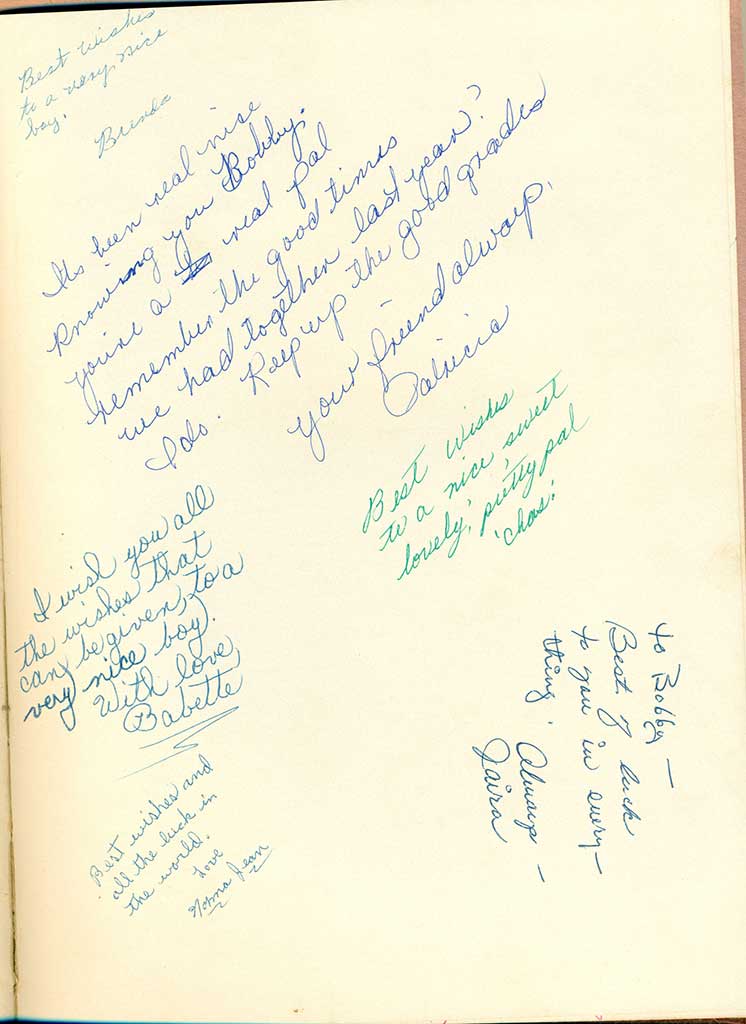 Best wishes
to a very nice
boy.
Brenda
Its been real nise
knowing you Bobby.
you're a real pal
remember the good times
we had together last year?
I do. Keep up the good grades
your friend always,
Patricia
Best wishes
to a nice, sweet
lovely, pretty pal
'chas!
I wish you all
the wishes that
can be given, to a
very nice boy.
With love
Babette
Best wishes and
all the luck in
the world.
Love
Norma Jean
to Bobby —
Best of luck
to you in every-
thing.
Always —